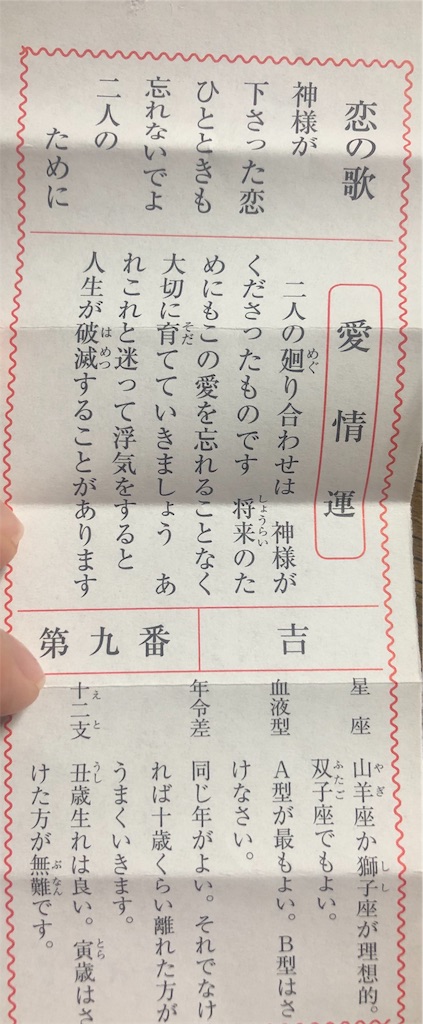 恋の歌
神様が
下さった恋
ひとときも
忘れないでよ
二人の
ために
愛情運
二人の廻り合わせは 神様が
くださったものです 将来のた
めにもこの愛を忘れることなく
大切に育てていきましょう あ
れこれと迷って浮気をすると
人生が破滅することがあります
吉
第九番
星座
山羊座か獅子座が理想的。
双子座でもよい。
血液型
A型が最もよい。B型はさ
けなさい。
年令差
同じ年がよい。それでなけ
れば十歳くらい離れた方が
うまくいきます。
十二支
丑歳生れは良い。寅歳はさ
けた方が無難です。